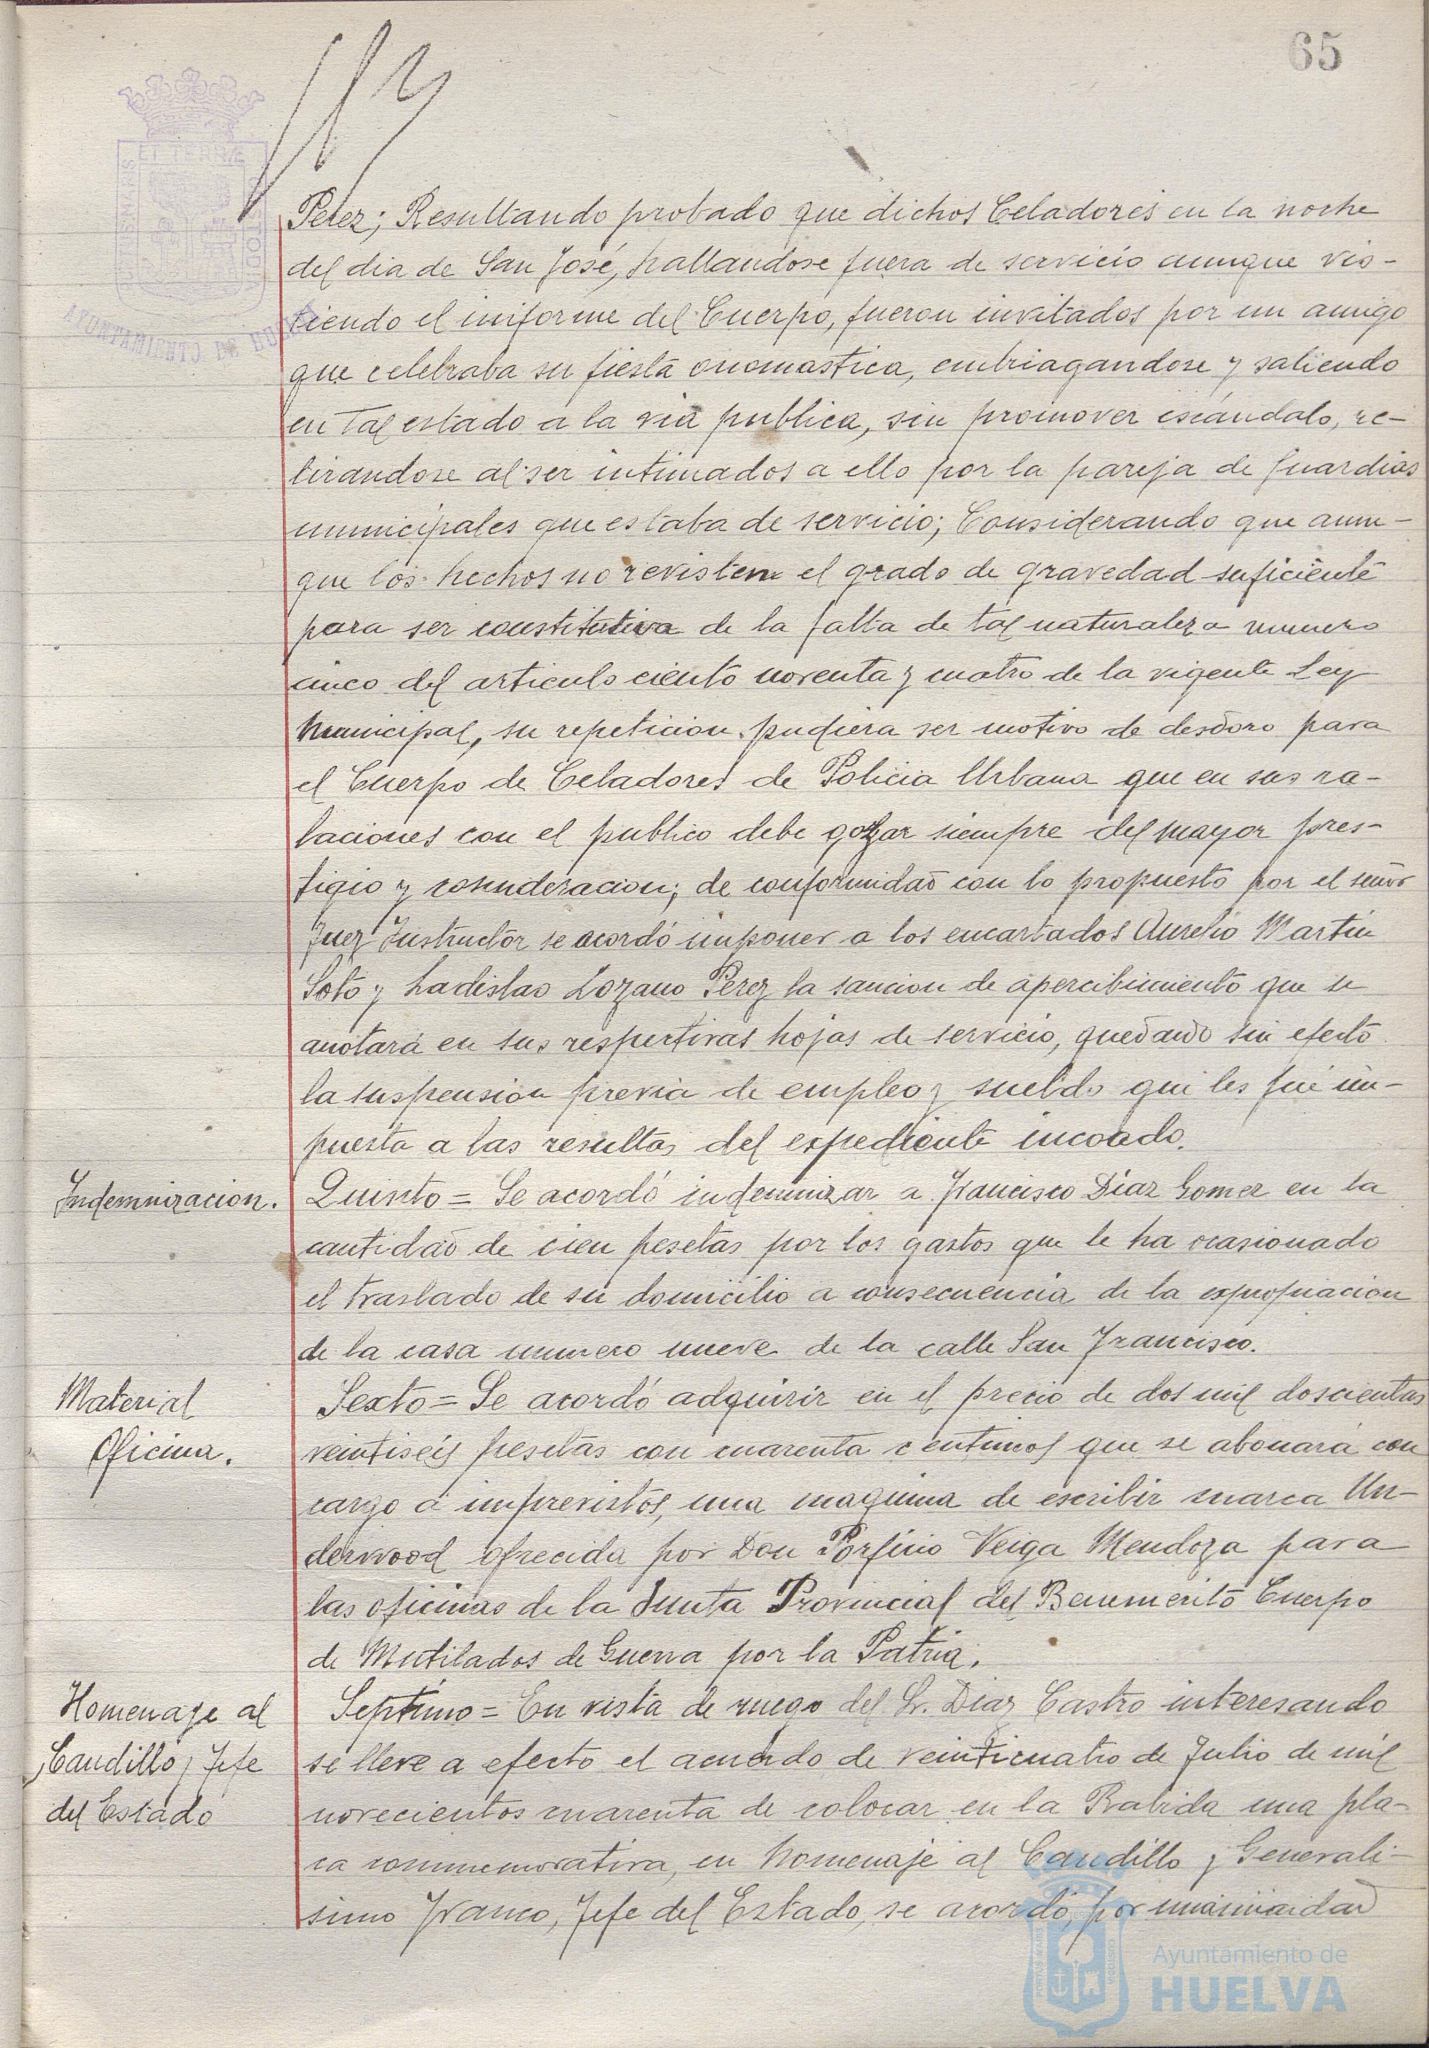 65
ET TERRÆ
CUSTODIA
AYUNTAMIENTO DE HUELVA
Perez; Resultando probado que dichos Celadores en la noche
del dia de San José, hallandose fuera de servicio aunque vis-
tiendo el uniforme del Cuerpo, fueron invitados por un amigo
que celebraba su fiesta onomastica, embriagandose y saliendo
en tal estado a la via publica, sin promover escándalo, re-
tirandose al ser intimados a ello por la pareja de Guardias
municipales que estaba de servicio; Considerando que aun-
que los hechos no revisten el grado de gravedad suficiente
para ser constitutiva de la falta de tal naturaleza numero
cinco del articulo ciento noventa y cuatro de la vigente Ley
Municipal, su repeticion pudiera ser motivo de desdoro para
el Cuerpo de Celadores de Policia Urbana que en sus re-
laciones con el publico debe gozar siempre del mayor pres-
tigio y consideracion; de conformidad con lo propuesto por el señor
Juez Instructor se acordó imponer a los encartados Aurelio Martin
Soto y Ladislao Lozano Perez la sancion de apercibimiento que se
anotará en sus respectivas hojas de servicio, quedando sin efecto
la suspension previa de empleo y sueldo que les fué im-
puesta a las resultas del expediente incoado.
Indemnizacion.
Quinto = Se acordó indemnizar a Francisco Diaz Gomez en la
cantidad de cien pesetas por los gastos que le ha ocasionado
el traslado de su domicilio a consecuencia de la expropiacion
de la casa numero nueve de la calle San Francisco.
Material
Oficina.
Sexto = Se acordó adquirir en el precio de dos mil doscientas
veintiseis pesetas con cuarenta centimos que se abonará con
cargo a imprevistos, una maquina de escribir marca Un-
derwood ofrecida por Don Porfirio Veiga Mendoza para
las oficinas de la Junta Provincial del Benemerito Cuerpo
de Mutilados de Guerra por la Patria.
Homenaje al
Caudillo y Jefe
del Estado
Septimo = En vista de ruego del Sr. Diaz Castro interesando
se lleve a efecto el acuerdo de veinticuatro de Julio de mil
novecientos cuarenta de colocar en la Rabida una pla-
ca conmemorativa, en homenaje al Caudillo y Generali-
simo Franco, Jefe del Estado, se acordó, por unanimidad
Ayuntamiento de
HUELVA